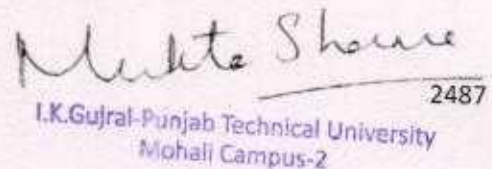 Mukta Sharma
2487
I.K.Gujral-Punjab Technical University
Mohali Campus-2